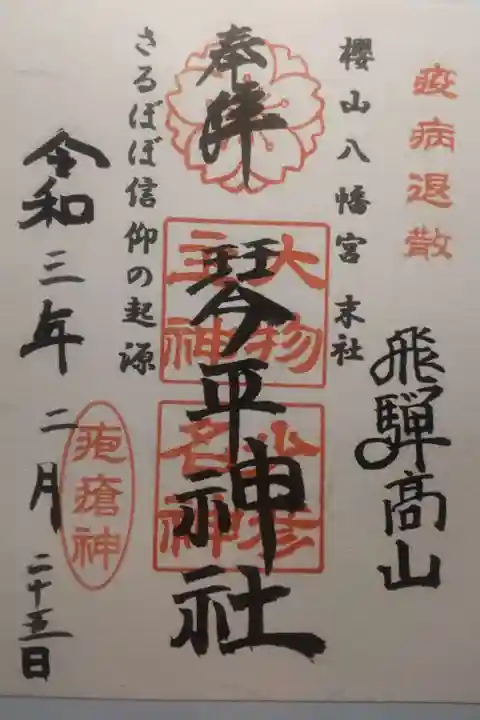 疫病退散
飛騨高山
櫻山八幡宮 末社
奉拜
琴平神社
大物主神
少彦名神
さるぼぼ信仰の起源
疱瘡神
令和三年二月二十五日